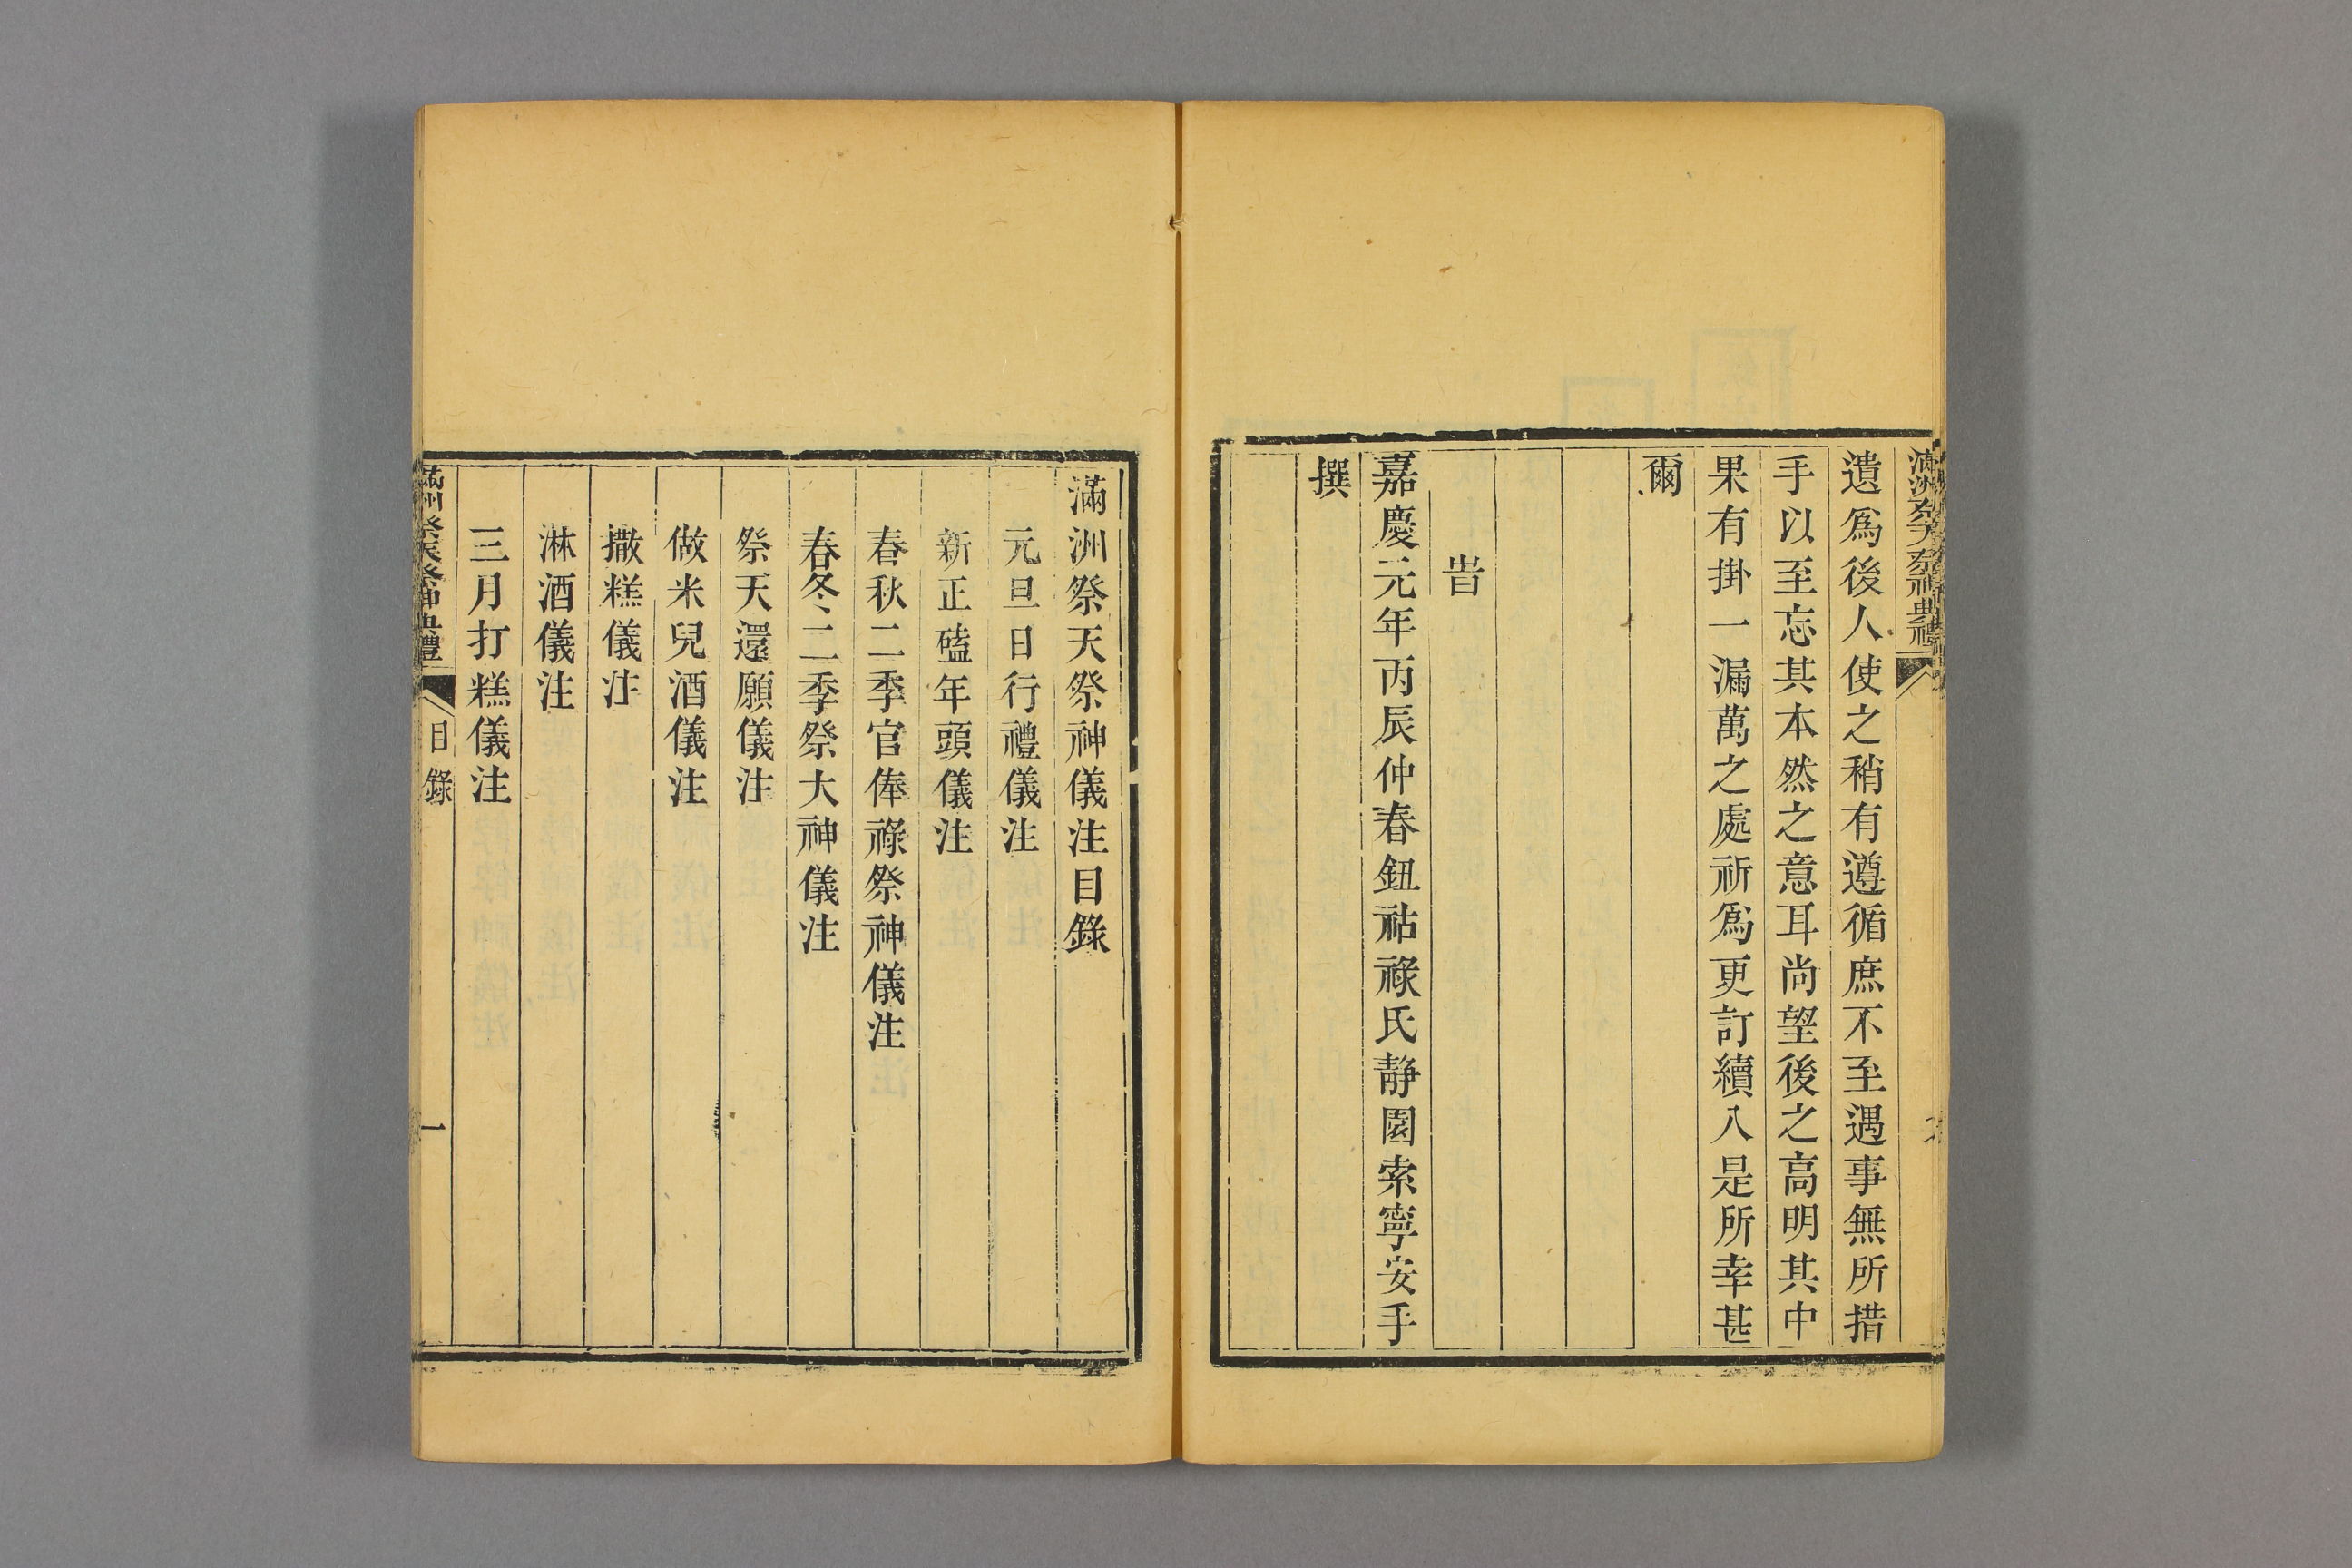 滿洲祭天祭神典禮
遺爲後人使之稍有遵循庶不至遇事無所措
手以至忘其本然之意耳尚望後之高明其中
果有掛一漏萬之處祈爲更訂續入是所幸甚
爾
旹
嘉慶元年丙辰仲春鈕祜祿氏靜園索寧安手
撰
滿洲祭天祭神儀注目錄
元旦日行禮儀注
新正磕年頭儀注
春秋二季官俸祿祭神儀注
春冬二季祭大神儀注
祭天還願儀注
做米兒酒儀注
撒糕儀注
淋酒儀注
三月打糕儀注
滿洲祭天祭神典禮 目錄 一